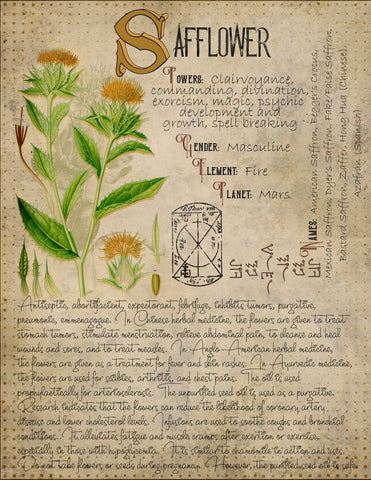 SAFFLOWER
POWERS: Clairvoyance,
commanding, divination,
exorcism, magic, psychic
development and
growth, spell breaking
GENDER: Masculine
ELEMENT: Fire
PLANET: Mars
NAMES: American Saffron, Beggar's Crocus,
Mexican Saffron, Dyer's Saffron, Fake False Saffron
Bastard Saffron, Zaffer, Hong Hua (Chinese),
Azafran (Spanish)
Antiseptic, abortifacient, expectorant, febrifuge, inhibits tumors, purgative,
pneumonia, emmenagogue. In Chinese herbal medicine, the flowers are given to treat
stomach tumors, stimulate menstruation, relieve abdominal pain, to cleanse and heal
wounds and sores, and to treat measles. In Anglo-American herbal medicine,
the flowers are given as a treatment for fever and skin rashes. In Ayurvedic medicine,
the flowers are used for scabies, arthritis, and chest pains. The oil is used
prophylactically for arteriosclerosis. The unpurified seed oil is used as a purgative.
Research indicates that the flowers can reduce the likelihood of coronary artery
disease and lower cholesterol levels. Infusions are used to soothe coughs and bronchial
conditions. It alleviates fatigue and muscle cramps after exertion or exercise,
especially in those with hypoglycemia. It is similar to chamomile in action and uses.
Do not take flowers or seeds during pregnancy. However, the purified seed oil is safe.